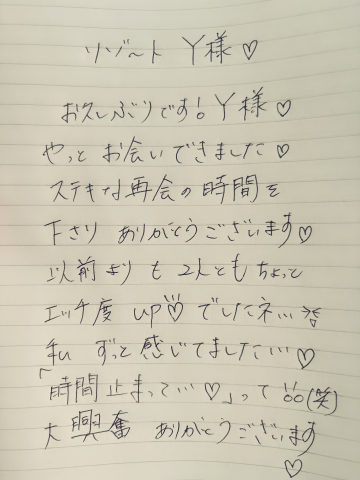 リゾート Y様♡
お久しぶりです! Y様♡
やっと お会いできました♡
ステキな再会の時間を
下さり ありがとうございます♡
以前よりも 2人とも ちょっと
エッチ度 up♡ でしたネ...
私 ずっと感じてました...♡
「時間止まって...♡」って!!(笑)
大興奮 ありがとうございます
♡